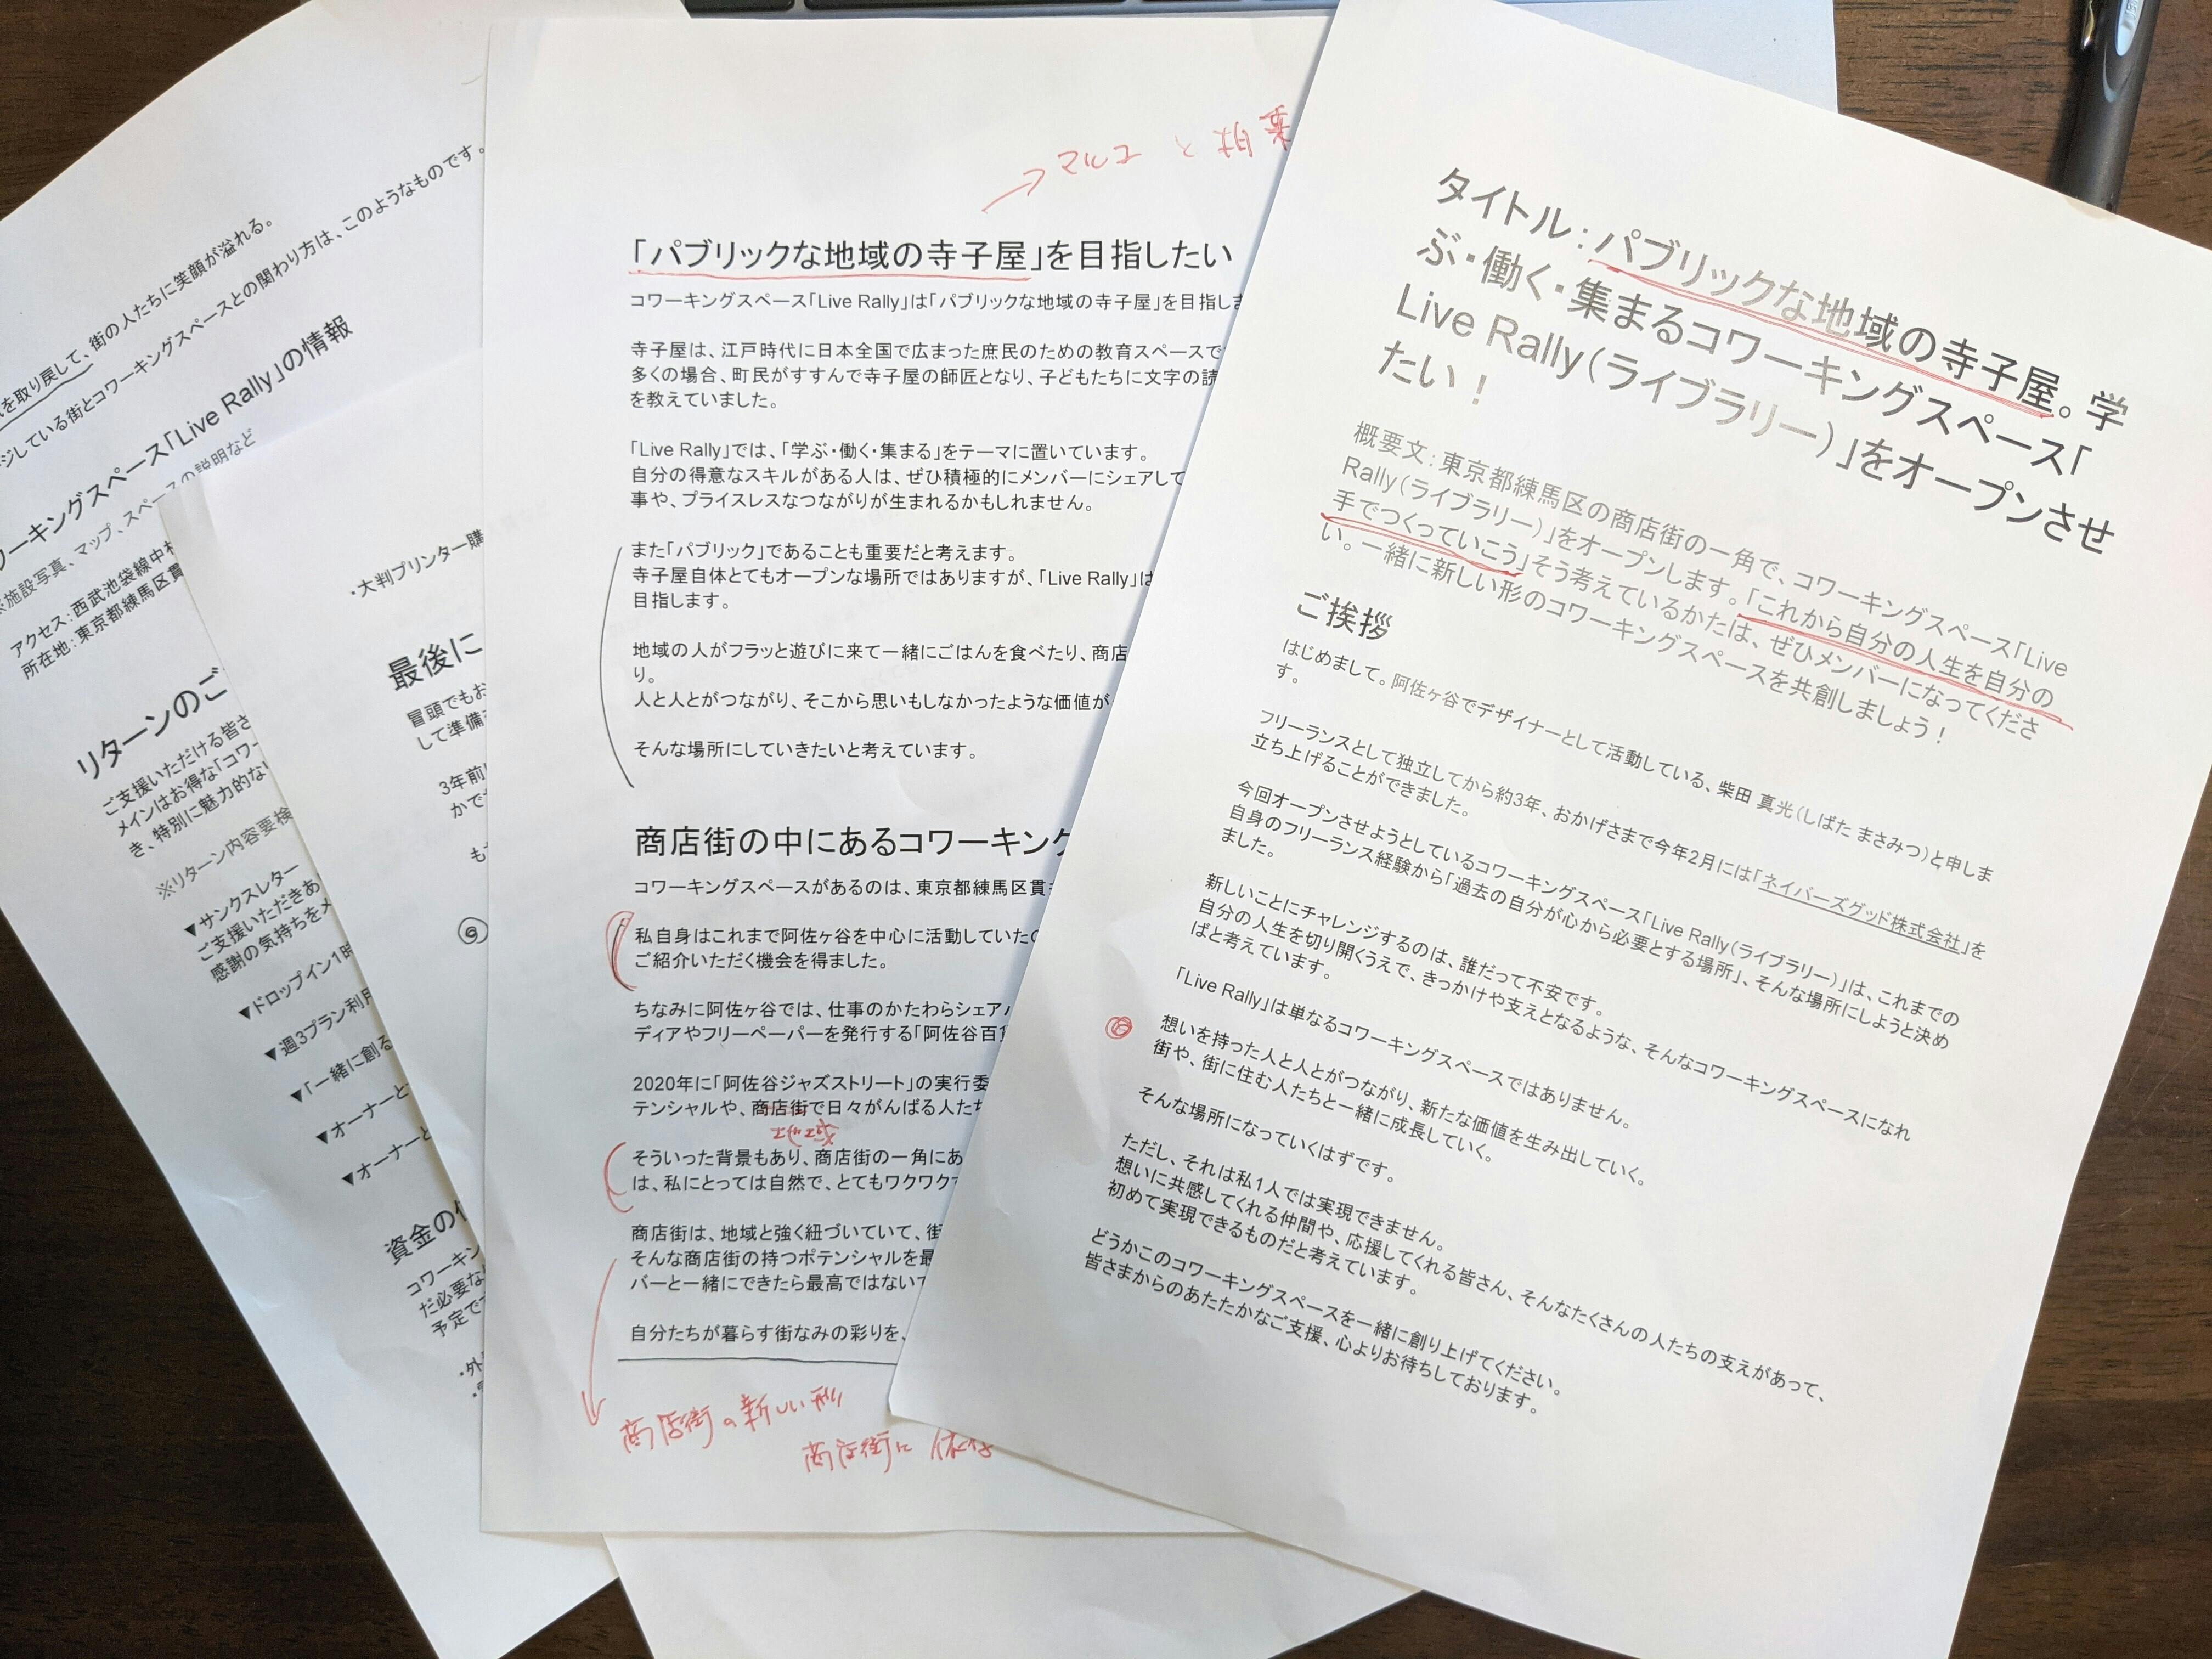 タイトル：パブリックな地域の寺子屋。学
ぶ・働く・集まるコワーキングスペース「
Live Rally（ライブラリー）」をオープンさせ
たい！
概要文：東京都練馬区の商店街の一角で、コワーキングスペース「Live
Rally（ライブラリー）」をオープンします。「これから自分の人生を自分の
手でつくっていこう」そう考えているかたは、ぜひメンバーになってくださ
い。一緒に新しい形のコワーキングスペースを共創しましょう！
ご挨拶
はじめまして。阿佐ヶ谷でデザイナーとして活動している、柴田 真光（しばた まさみつ）と申しま
す。
フリーランスとして独立してから約3年、おかげさまで今年2月には「ネイバーズグッド株式会社」を
立ち上げることができました。
今回オープンさせようとしているコワーキングスペース「Live Rally（ライブラリー）」は、これまでの
自身のフリーランス経験から「過去の自分が心から必要とする場所」、そんな場所にしようと決め
ました。
新しいことにチャレンジするのは、誰だって不安です。
自分の人生を切り開くうえで、きっかけや支えとなるような、そんなコワーキングスペースになれ
ばと考えています。
「Live Rally」は単なるコワーキングスペースではありません。
想いを持った人と人とがつながり、新たな価値を生み出していく。
街や、街に住む人たちと一緒に成長していく。
そんな場所になっていくはずです。
ただし、それは私1人では実現できません。
想いに共感してくれる仲間や、応援してくれる皆さん、そんなたくさんの人たちの支えがあって、
初めて実現できるものだと考えています。
どうかこのコワーキングスペースを一緒に創り上げてください。
皆さまからのあたたかなご支援、心よりお待ちしております。
→ マルコ と 柏葉
「パブリックな地域の寺子屋」を目指したい
コワーキングスペース「Live Rally」は「パブリックな地域の寺子屋」を目指しま
寺子屋は、江戸時代に日本全国で広まった庶民のための教育スペースで
多くの場合、町民がすすんで寺子屋の師匠となり、子どもたちに文字の読
を教えていました。
「Live Rally」では、「学ぶ・働く・集まる」をテーマに置いています。
自分の得意なスキルがある人は、ぜひ積極的にメンバーにシェアして
事や、プライスレスなつながりが生まれるかもしれません。
また「パブリック」であることも重要だと考えます。
寺子屋自体とてもオープンな場所ではありますが、「Live Rally」は
目指します。
地域の人がフラッと遊びに来て一緒にごはんを食べたり、商店
り。
人と人とがつながり、そこから思いもしなかったような価値が
そんな場所にしていきたいと考えています。
商店街の中にあるコワーキング
コワーキングスペースがあるのは、東京都練馬区貫
私自身はこれまで阿佐ヶ谷を中心に活動していたの
ご紹介いただく機会を得ました。
ちなみに阿佐ヶ谷では、仕事のかたわらシェア
ディアやフリーペーパーを発行する「阿佐谷百
2020年に「阿佐谷ジャズストリート」の実行委
テンシャルや、商店街で日々がんばる人た
地域
そういった背景もあり、商店街の一角にあ
は、私にとっては自然で、とてもワクワク
商店街は、地域と強く紐づいていて、街
そんな商店街の持つポテンシャルを最
バーと一緒にできたら最高ではない
自分たちが暮らす街なみの彩りを、
商店街の新しい形
商店街に
・大判プリンター購
最後に
冒頭でもお
して準備
3年前
かで
も
を取り戻して、街の人たちに笑顔が溢れる。
ジしている街とコワーキングスペースとの関わり方は、このようなものです。
ワーキングスペース「Live Rally」の情報
※施設写真、マップ、スペースの説明など
アクセス：西武池袋線中村
所在地：東京都練馬区貫
リターンのご
ご支援いただける皆さ
メインはお得な「コワー
き、特別に魅力的な
※リターン内容要検
▼サンクスレター
ご支援いただきあ
感謝の気持ちをメ
▼ドロップイン1時
▼週3プラン利用
▼「一緒に創る
▼オーナーと
▼オーナーと
資金の
コワーキン
だ必要な
予定で
・外